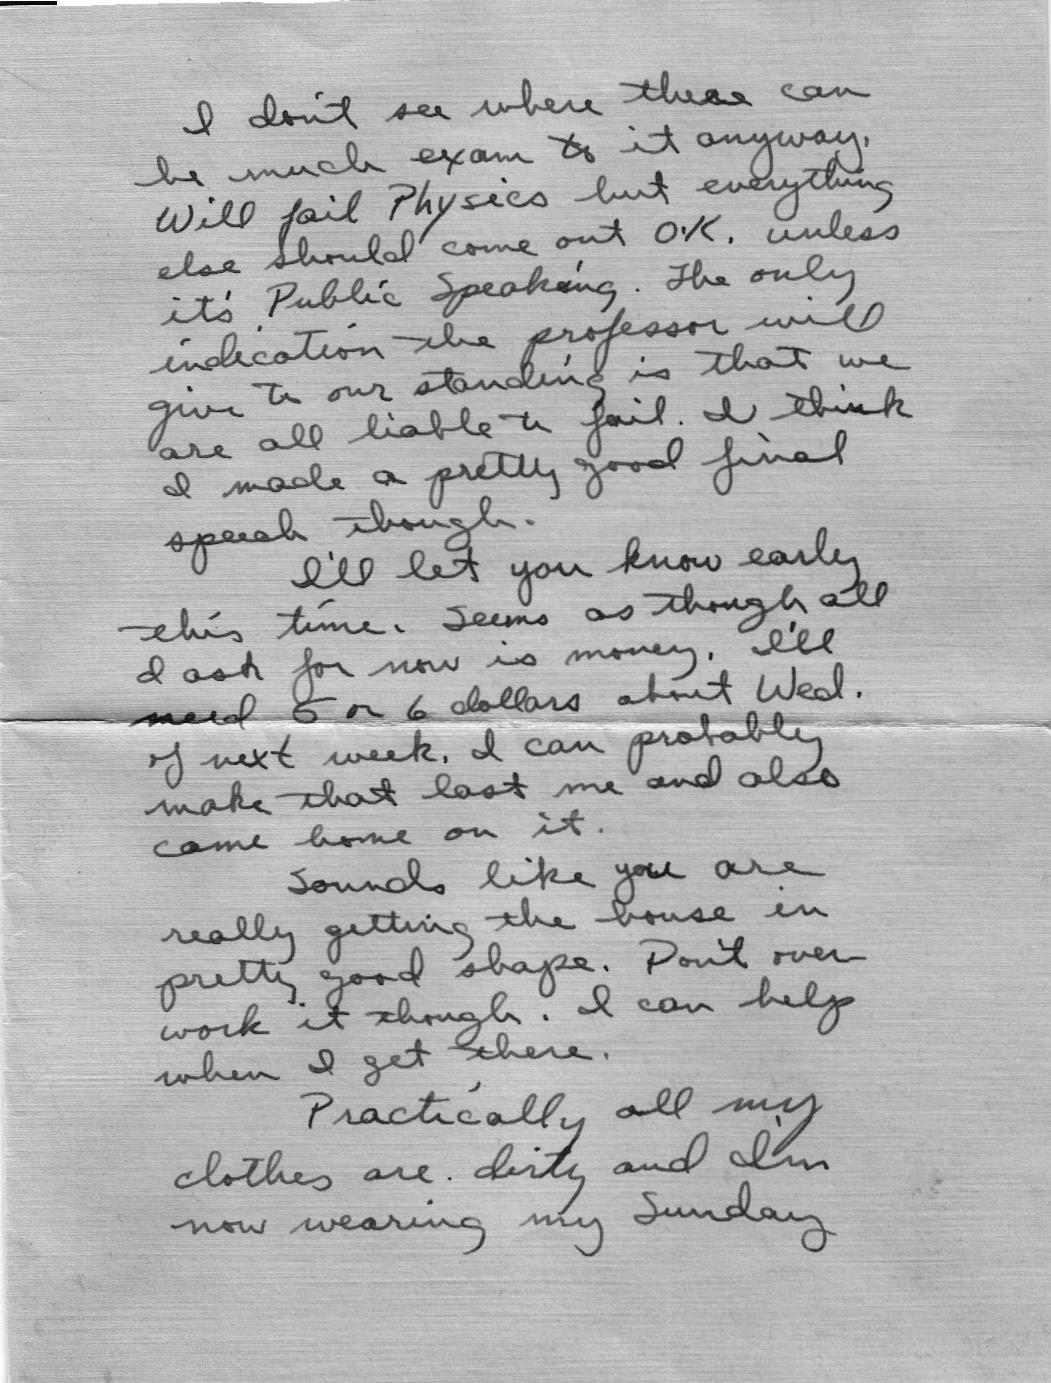 I don't see where there can
be much exam to it anyway.
Will fail Physics but everything
else should come out O.K. unless
it's Public Speaking. The only
indication the professor will
give to our standing is that we
are all liable to fail. I think
I made a pretty good final
speech though.
I'll let you know early
this time. Seems as though all
I ask for now is money. I'll
need 5 or 6 dollars about Wed.
of next week. I can probably
make that last me and also
come home on it.
Sounds like you are
really getting the house in
pretty good shape. Don't over-
work it though. I can help
when I get there.
Practically all my
clothes are dirty and I'm
now wearing my Sunday